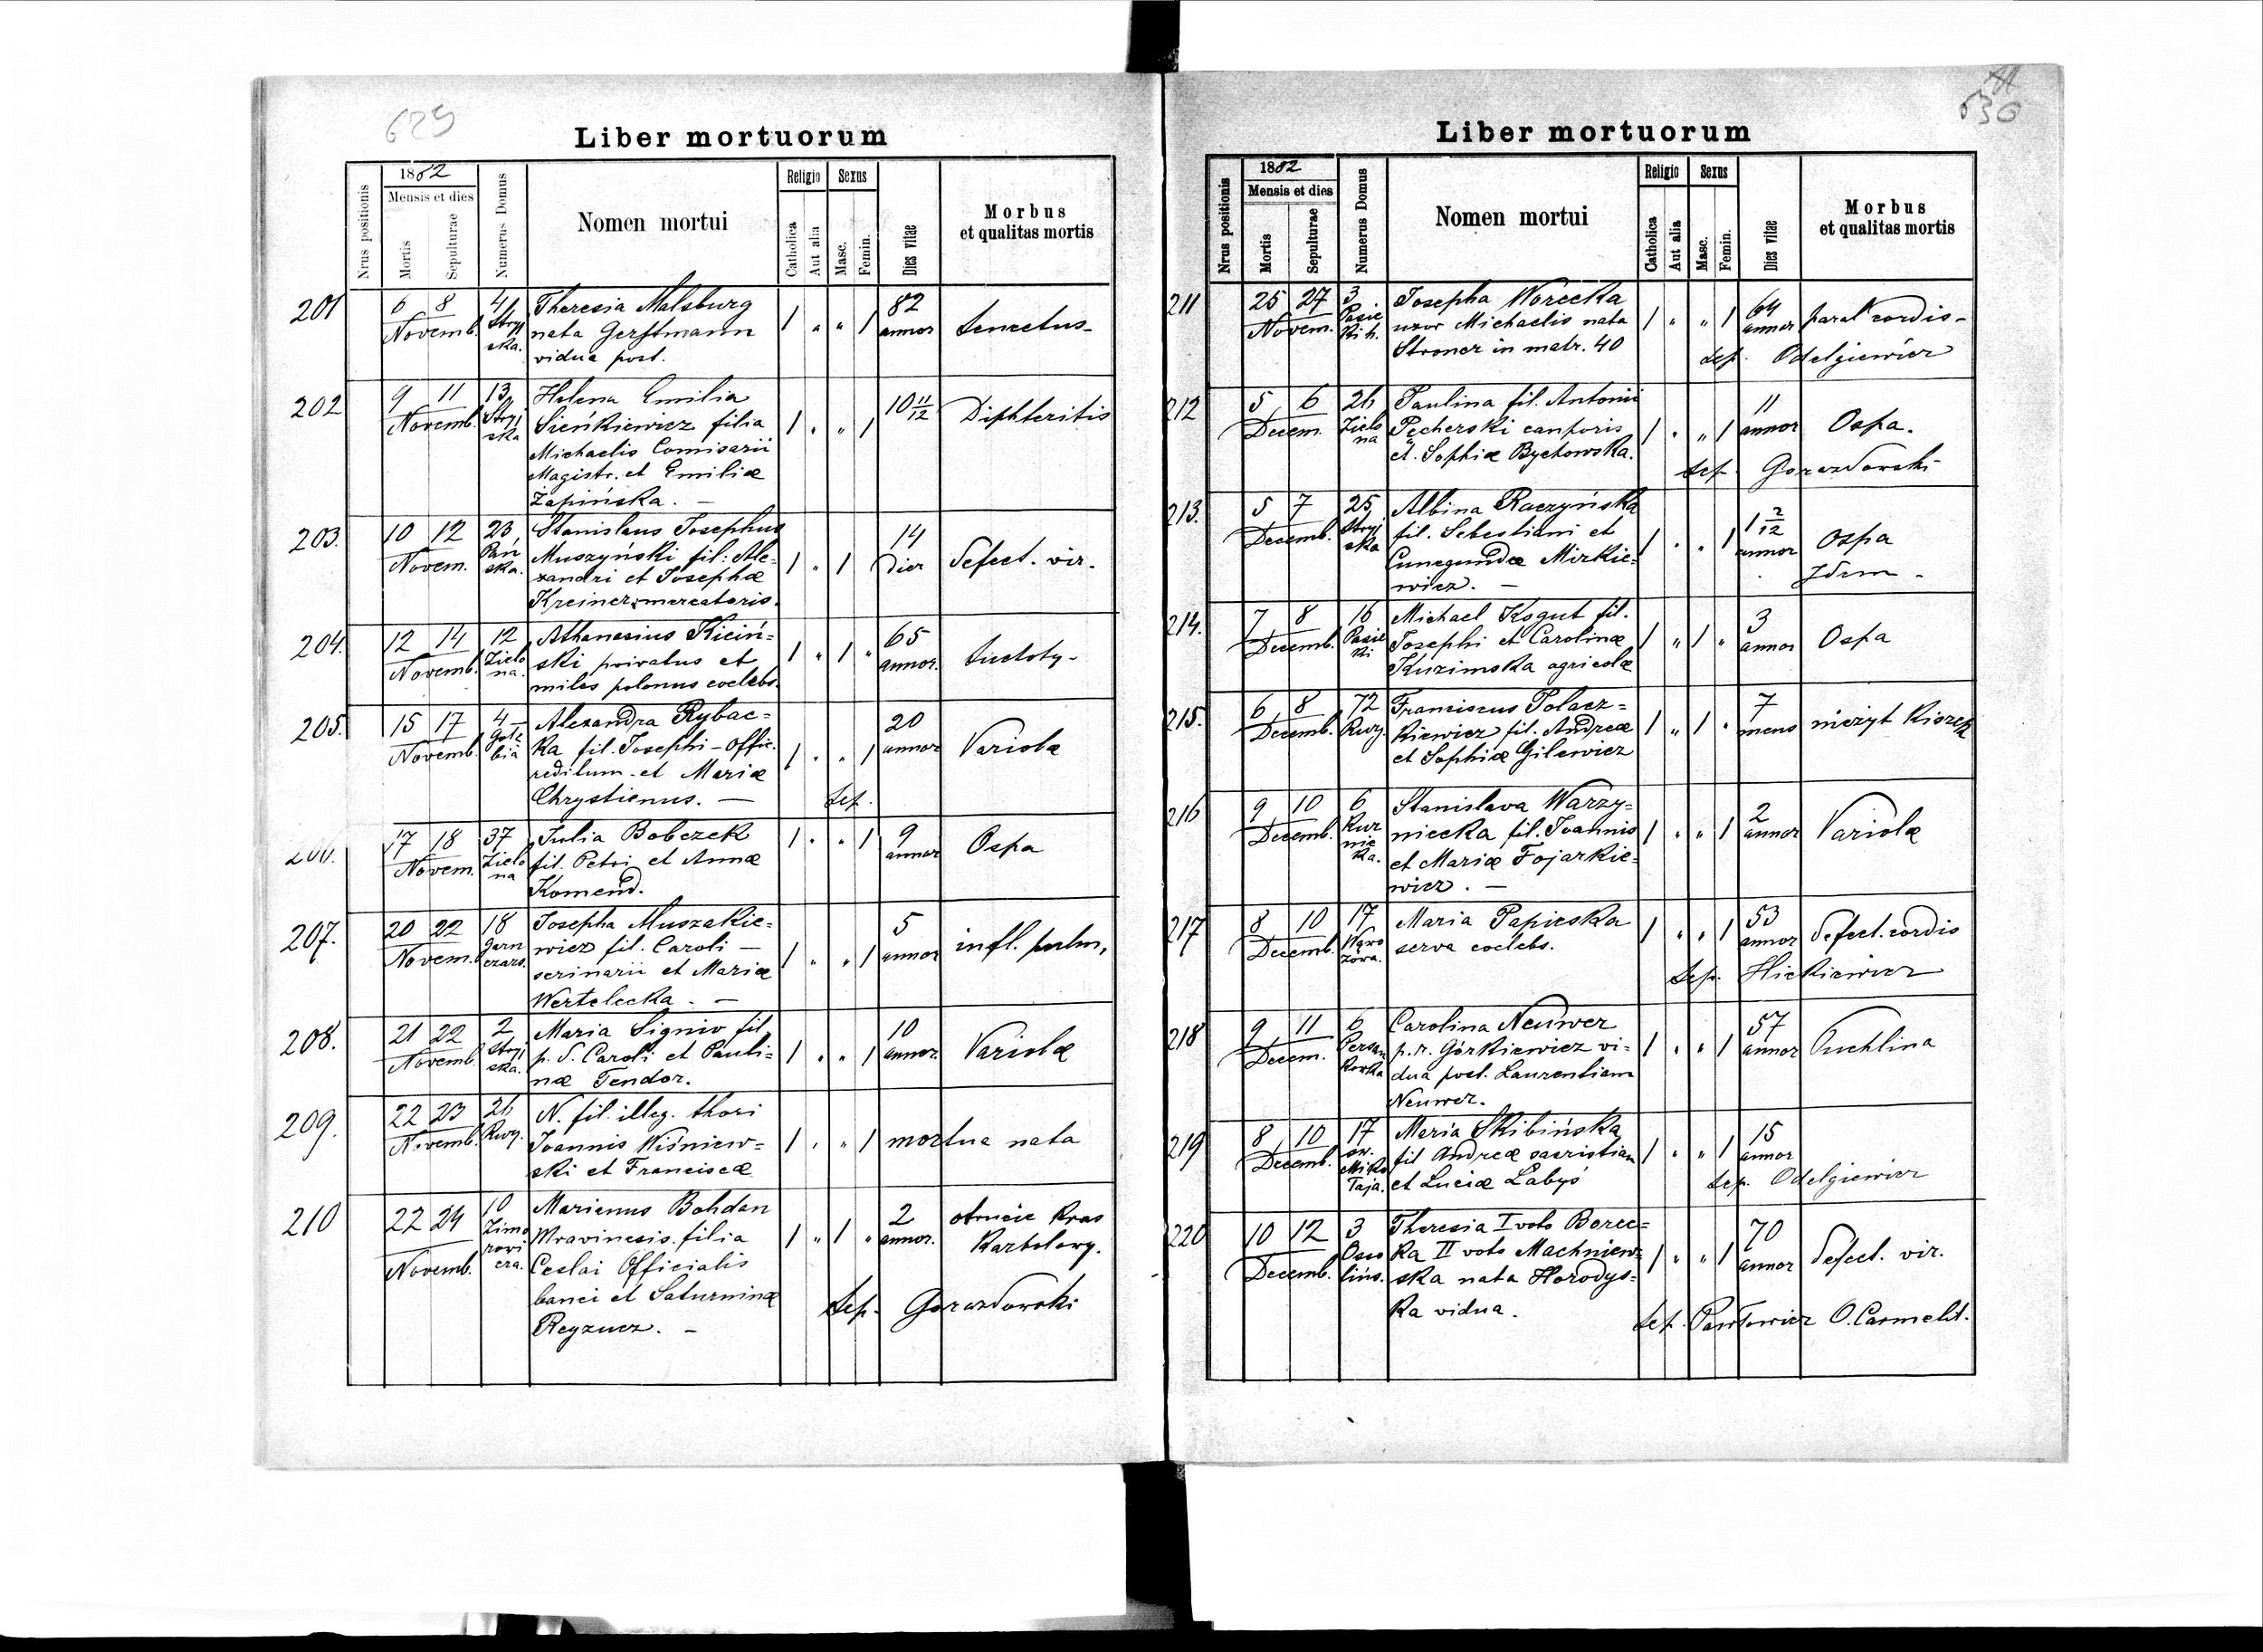 629
Liber mortuorum
Nrus positionis
1882
Mensis et dies
Mortis
Sepulturae
Numerus Domus
Nomen mortui
Religio
Catholica
Aut alia
Sexus
Masc.
Femin.
Dies vitae
Morbus
et qualitas mortis
201 6 8 Novemb. 41 Stryj
ska.
Theresia Malsburg
nata Gerstmann
vidua post.
1 " " 1 82 annor senectus-
202 9 11 Novemb. 13 Stryj
ska
Helena Emilia
Sieńkiewicz filia
Michaelis Comisarii
Magistr. et Emiliæ
Żapińska. —
1 . " 1 10 11/12 Diphteritis
203. 10 12 Novem. 23 Pań
ska.
Stanislaus Josephus
Muszyński fil: Ale=
xandri et Josephæ
Kreiner: mercatoris.
1 " 1 14 Dier Defect. vir.
204. 12 14 Novemb. 12 Zielo
na.
Athanasius Kiciń=
ski privatus et
miles polonus coelebs.
1 " 1 " 65 annor. Suchoty-
205. 15 17 Novemb. 4 Gołę
bia
Alexandra Rybac=
ka fil. Josephi - Offic.
redituum - et Mariæ
Chrystienus. —
1 . " 1 20 annor Variolæ
Sep.
206. 17 18 Novem. 37 Zielo
na
Julia Bobczek
fil. Petri et Annæ
Komend.
1 . " 1 9 annor Ospa
207. 20 22 Novem. 18 Garn
czars.
Josepha Muszakie=
wicz fil. Caroli —
scrinarii et Mariæ
Wertelecka. —
1 " " 1 5 annor infl. pulm.
208. 21 22 Novemb. 2 Stryj
ska.
Maria Signio fil
p. d. Caroli et Pauli=
næ Tendor.
1 . " 1 10 annor. Variolæ
209. 22 23 Novemb. 26 Rury.
N. fil. illeg. thori
Joannis Wiśniew=
ski et Franciscæ
1 . " 1 mortua nata
210 22 24 Novemb. 10 Zimo
rowi
cza.
Marianus Bohdan
Mravinesis filia
Ceslai Officialis
banci et Saturninæ
Reyznez. —
1 " 1 " 2 annor. otrucie kwas
karbolowy.
Sep. Gorazdowski
630
Liber mortuorum
Nrus positionis
1882
Mensis et dies
Mortis
Sepulturae
Numerus Domus
Nomen mortui
Religio
Catholica
Aut alia
Sexus
Masc.
Femin.
Dies vitae
Morbus
et qualitas mortis
211 25 27 Novem. 3 Pasie
ki h.
Josepha Worecka
uxor Michaelis nata
Stroner in matr. 40
1 " " 1 64 annor paral cordis-
Sep. Odelgiewicz
212 5 6 Decem. 26 Zielo
na
Paulina fil. Antonii
Pecherski canporis
et. Sophiæ Bychowska.
1 . " 1 11 annor Ospa.
Sep. Gorazdowski
213. 5 7 Decemb. 25 Stryj
ska
Albina Raczyńska
fil. Sebestiani et
Cunegundæ Mirkie=
wicz. —
1 . . 1 1 2/12 annor Ospa
Idem -
214. 7 8 Decemb. 16 Pasie
ki
Michael Kogut fil.
Josephi et Carolinæ
Kuzimska agricolæ
1 " 1 " 3 annor Ospa
215. 6 8 Decemb. 72 Rury.
Franciscus Polacz=
kiewicz fil. Andreæ
et Sophiæ Gilewicz
1 " 1 . 7 mens nieżyt kiszek
216 9 10 Decemb. 6 Kur
nic
ka.
Stanislava Warzy=
niecka fil. Joannis
et Mariæ Fojarkie=
wicz. —
1 . " 1 2 annor Variolæ
217 8 10 Decemb. 17 Wąwo
zowa.
Maria Papieska
serva coelebs.
1 . . 1 53 annor Defect. cordis
Sep. Hickiewicz
218 9 11 Decem. 6 Persen
kowka
Carolina Neuwer
p. r. Górkiewicz vi=
dua post. Laurentium
Neuwer.
1 . " 1 57 annor Puchlina
219 8 10 Decemb. 17 św.
Miko
łaja.
Maria Skibińska
fil Andreæ sacristian
et Luciæ Labyś
1 . " 1 15 annor
Sep. Odelgiewicz
220 10 12 Decemb. 3 Osso
lińs.
Theresia I voto Borec=
ka II voto Machniew=
ska nata Horodys=
ka vidua.
1 " " 1 70 annor Defect. vir.
Sep. Pawłowicz O. Carmelit.